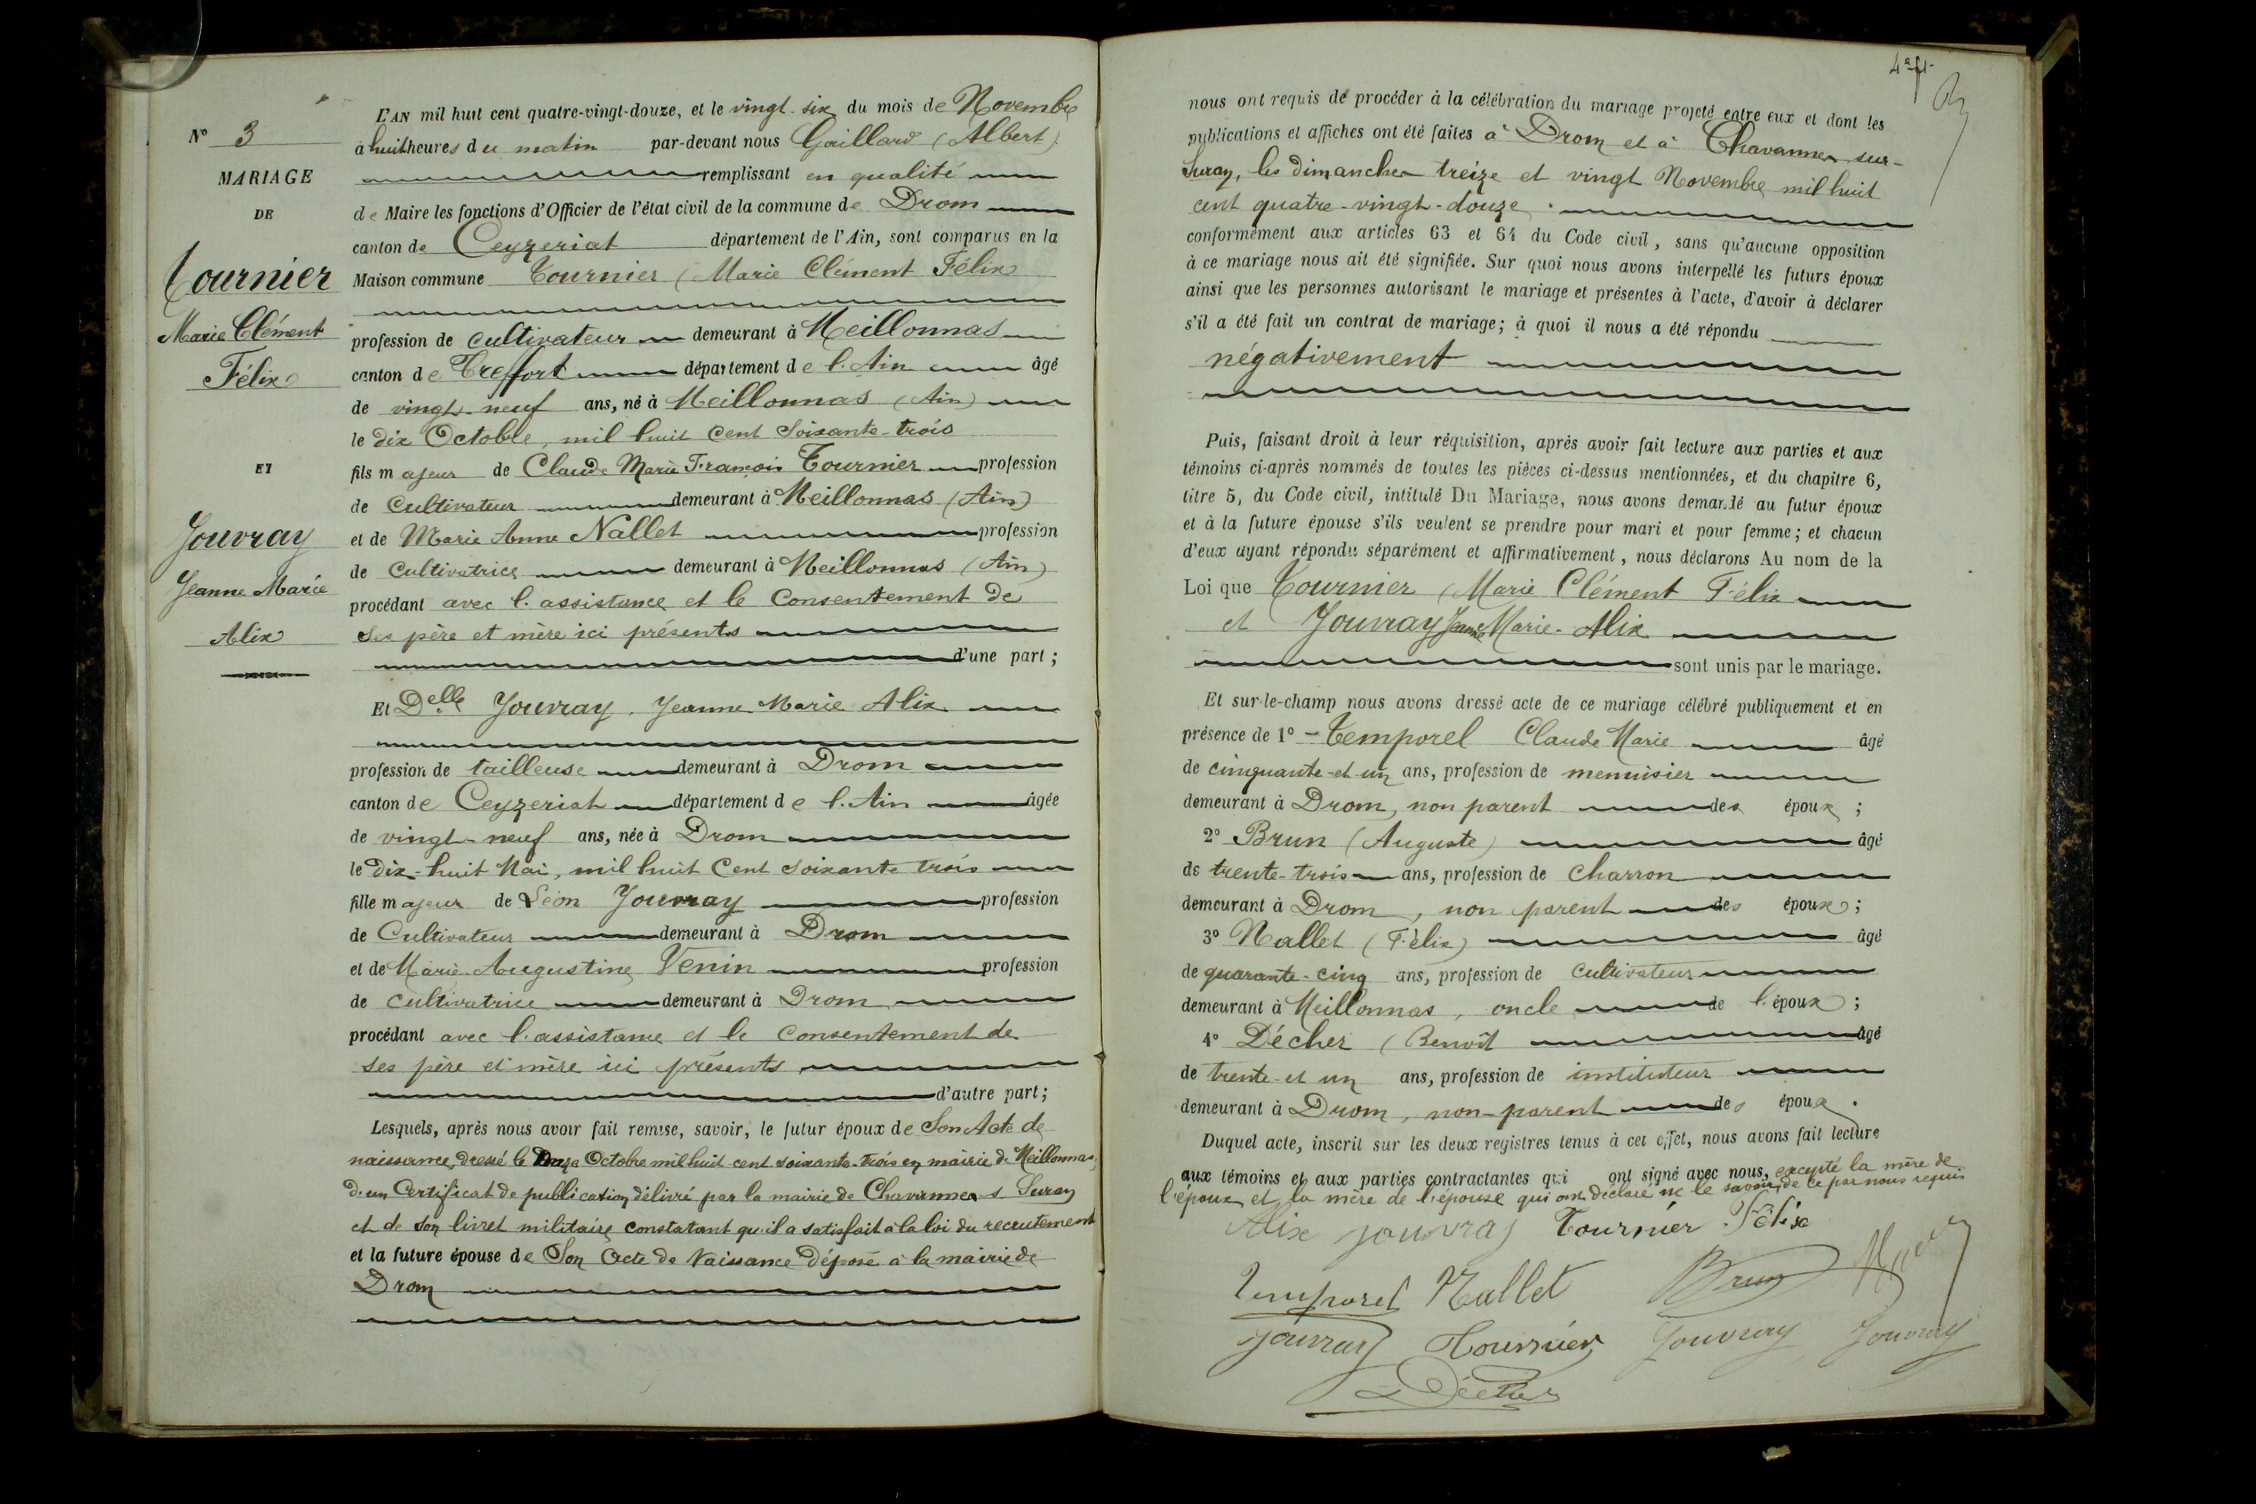 N° 3
MARIAGE
DE
Tournier
Marie Clément
Félix
ET
Jouvray
Jeanne Marie
Alix
L'AN mil huit cent quatre-vingt-douze, et le vingt-six du mois de Novembre
à huit heures du matin par-devant nous Gaillard (Albert)
remplissant en qualité
de Maire les fonctions d'Officier de l'état civil de la commune de Drom
canton de Ceyzeriat département de l'Ain, sont comparus en la
Maison commune Tournier (Marie Clément Félix
profession de cultivateur demeurant à Meillonnas
canton de Treffort département de l'Ain âgé
de vingt-neuf ans, né à Meillonnas (Ain)
le dix Octobre, mil huit cent soixante-trois
fils majeur de Claude Marie François Tournier profession
de Cultivateur demeurant à Meillonnas (Ain)
et de Marie Anne Nallet profession
de Cultivatrice demeurant à Meillonnas (Ain)
procédant avec l'assistance et le Consentement de
ses père et mère ici présents
d'une part ;
Et Delle Jouvray Jeanne Marie Alix
profession de tailleuse demeurant à Drom
canton de Ceyzeriat département de l'Ain âgée
de vingt-neuf ans, née à Drom
le dix-huit Mai, mil huit Cent soixante trois
fille majeur de Léon Jouvray profession
de Cultivateur demeurant à Drom
et de Marie Augustine Venin profession
de cultivatrice demeurant à Drom
procédant avec l'assistance et le consentement de
ses père et mère ici présents
d'autre part ;
Lesquels, après nous avoir fait remise, savoir, le futur époux de Son Acte de
naissance, dressé le Octobre mil huit cent soixante-trois en mairie de Meillonnas,
d'un Certificat de publication délivré par la mairie de Chavannes s Suran
et de son livret militaire constatant qu'il a satisfait à la loi du recrutement
et la future épouse de Son Acte de Naissance déposé à la mairie de
Drom
nous ont requis de procéder à la célébration du mariage projeté entre eux et dont les
publications et affiches ont été faites à Drom et à Chavannes sur-
Suran, les dimanches treize et vingt Novembre mil huit
cent quatre-vingt-douze.
conformément aux articles 63 et 64 du Code civil, sans qu'aucune opposition
à ce mariage nous ait été signifiée. Sur quoi nous avons interpellé les futurs époux
ainsi que les personnes autorisant le mariage et présentes à l'acte, d'avoir à déclarer
s'il a été fait un contrat de mariage ; à quoi il nous a été répondu
négativement
Puis, faisant droit à leur réquisition, après avoir fait lecture aux parties et aux
témoins ci-après nommés de toutes les pièces ci-dessus mentionnées, et du chapitre 6,
titre 5, du Code civil, intitulé Du Mariage, nous avons demandé au futur époux
et à la future épouse s'ils veulent se prendre pour mari et pour femme ; et chacun
d'eux ayant répondu séparément et affirmativement, nous déclarons Au nom de la
Loi que Tournier (Marie Clément Félix
et Jouvray Jeanne Marie-Alix
sont unis par le mariage.
Et sur-le-champ nous avons dressé acte de ce mariage célébré publiquement et en
présence de 1° Temporel Claude Marie âgé
de cinquante-et-un ans, profession de menuisier
demeurant à Drom, non parent des époux ;
2° Brun (Auguste) âgé
de trente-trois ans, profession de Charron
demeurant à Drom, non parent des époux ;
3° Nallet (Félix) âgé
de quarante-cinq ans, profession de Cultivateur
demeurant à Meillonnas, oncle de l'époux ;
4° Décher (Benoît âgé
de trente-et un ans, profession de instituteur
demeurant à Drom, non-parent des époux.
Duquel acte, inscrit sur les deux registres tenus à cet effet, nous avons fait lecture
aux témoins et aux parties contractantes qui ont signé avec nous, excepté la mère de
l'époux et la mère de l'épouse qui ont déclaré ne le savoir, de ce par nous requis
Alix jouvray Tournier Félix
Temporel Nallet Brun
Jouvray Tournier Jouvray Jouvray
Décher